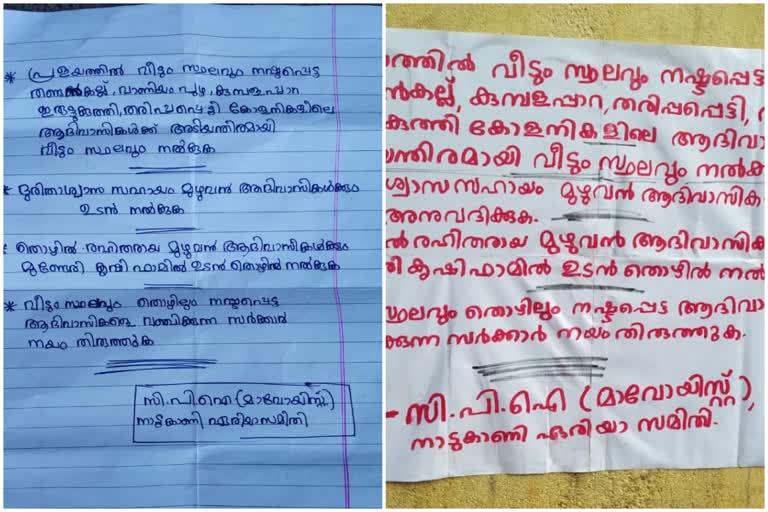 * പ്രളയത്തിൽ വീടും സ്ഥലവും നഷ്ടപ്പെട്ട
തണ്ടൻകല്ല്, വാണിയം പുഴ, കുമ്പളപ്പാറ
ഇരുട്ടുകുത്തി, തരിപ്പപ്പെട്ടി കോളനികളിലെ
ആദിവാസികൾക്ക് അടിയന്തിരമായി
വീടും സ്ഥലവും നൽകുക
* ദുരിതാശ്വാസ സഹായം മുഴുവൻ ആദിവാസികൾക്കും
ഉടൻ നൽകുക
* തൊഴിൽ രഹിതരായ മുഴുവൻ ആദിവാസികൾക്കും
മുണ്ടേരി കൃഷി ഫാമിൽ ഉടൻ തൊഴിൽ നൽകുക
* വീടും സ്ഥലവും തൊഴിലും നഷ്ടപ്പെട്ട
ആദിവാസികളെ വഞ്ചിക്കുന്ന സർക്കാർ
നയം തിരുത്തുക
സി.പി.ഐ (മാവോയിസ്റ്റ്)
നാടുകാണി ഏരിയാസമിതി
ത്തിൽ വീടും സ്ഥലവും നഷ്ടപ്പെട്ട
ൻകല്ല്, കുമ്പളപ്പാറ, തരിപ്പപ്പെട്ടി,
കുത്തി കോളനികളിലെ ആദിവാ
ന്തിരമായി വീടും സ്ഥലവും നൽക
ശ്വാസ സഹായം മുഴുവൻ ആദിവാസിക
അനുവദിക്കുക.
ൽ രഹിതരായ മുഴുവൻ ആദിവാസിക
രി കൃഷി ഫാമിൽ ഉടൻ തൊഴിൽ നൽ
സ്ഥലവും തൊഴിലും നഷ്ടപ്പെട്ട ആദിവാ
ക്കുന്ന സർക്കാർ നയം തിരുത്തുക.
- സി.പി.ഐ (മാവോയിസ്റ്റ്),
നാടുകാണി ഏരിയാ സമിതി.